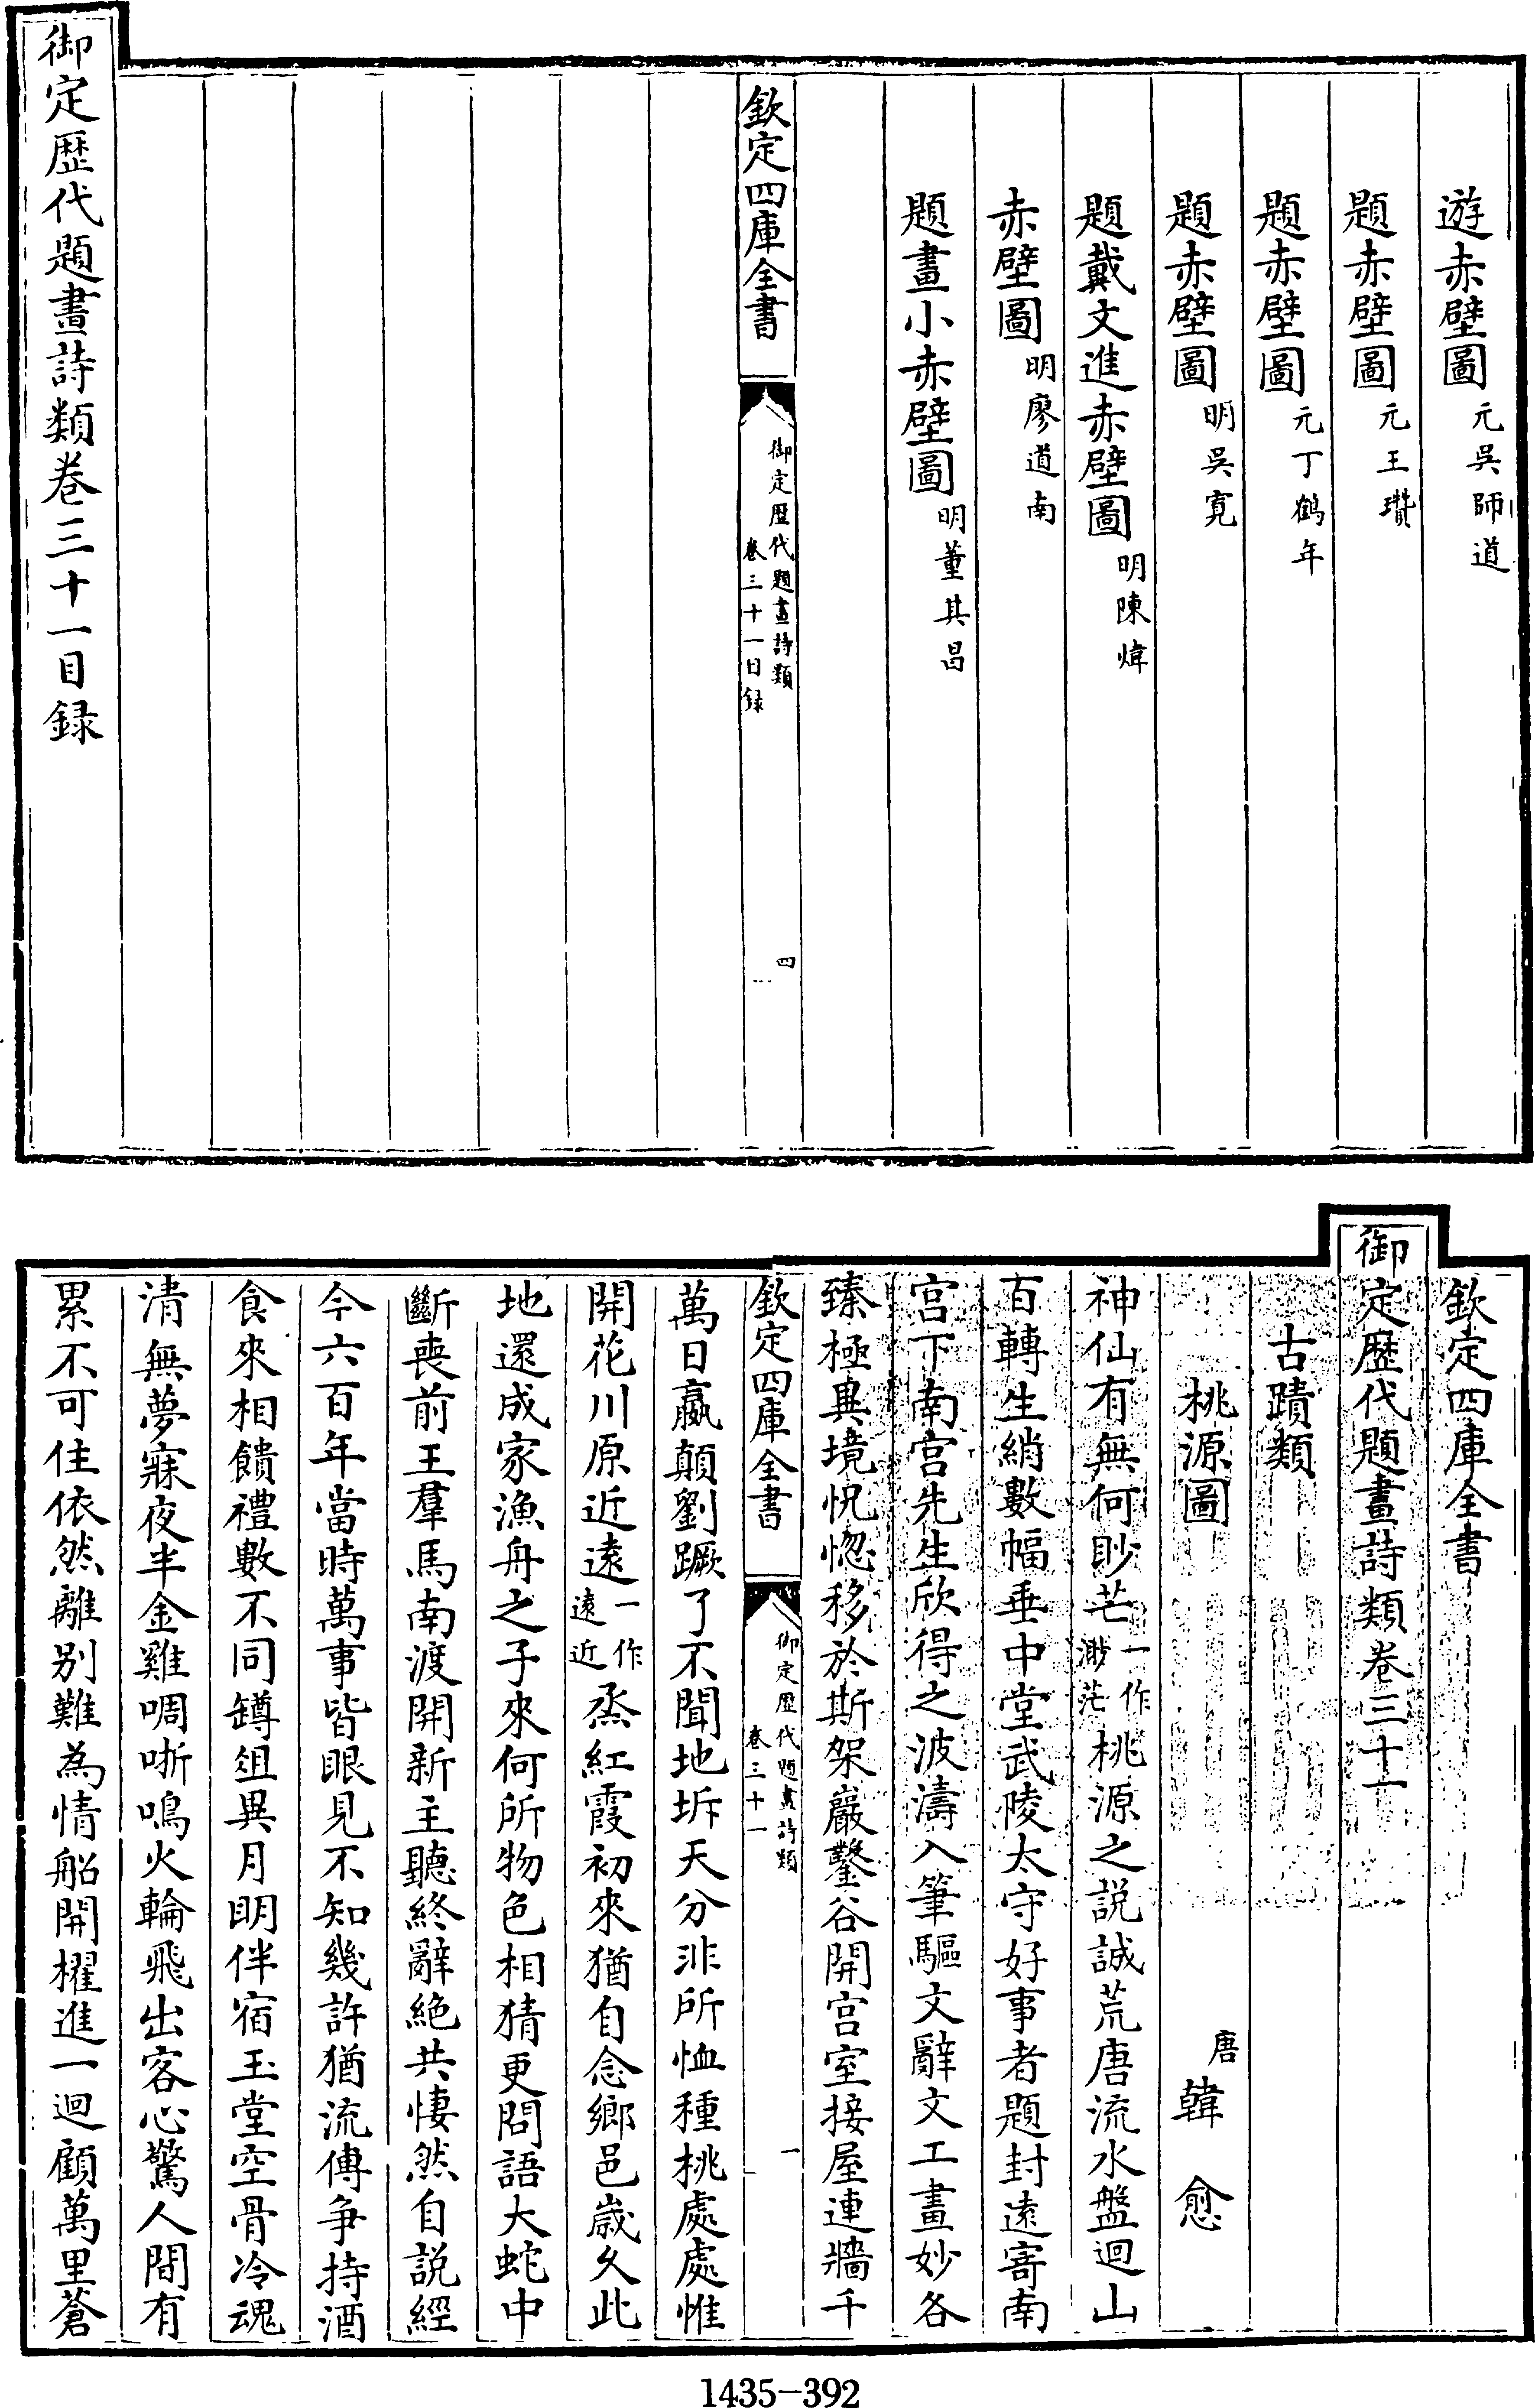 遊赤壁圖元吳師道
題赤壁圖元王瓚
題赤壁圖元丁鶴年
題赤壁圖明吳寬
題戴文進赤壁圖明陳煒
赤壁圖明廖道南
題畫小赤壁圖明董其昌
欽定四庫全書
御定歴代題畫詩類
卷三十一目録
四
御定歴代題畫詩類卷三十一目録
欽定四庫全書
御定歴代題畫詩類卷三十一
古蹟類
桃源圖
唐韓愈
神仙有無何眇芒一作渺茫桃源之説誠荒唐流水盤迴山
百轉生綃數幅垂中堂武陵太守好事者題封遠寄南
宫下南宫先生欣得之波濤入筆驅文辭文工畫妙各
臻極異境怳惚移於斯架巖鑿谷開宫室接屋連牆千
欽定四庫全書
御定歴代題畫詩類
卷三十一
一
萬日嬴顛劉蹶了不聞地坼天分非所恤種桃處處惟
開花川原近遠一作遠近烝紅霞初來猶自念鄉邑歲久此
地還成家漁舟之子來何所物色相猜更問語大蛇中
斷喪前王羣馬南渡開新主聽終辭絶共悽然自説經
今六百年當時萬事皆眼見不知幾許猶流傳爭持酒
食來相饋禮數不同罇俎異月明伴宿玉堂空骨冷魂
清無夢寐夜半金雞啁哳鳴火輪飛出客心驚人間有
累不可住依然離别難為情船開櫂進一迴顧萬里蒼
1435-392